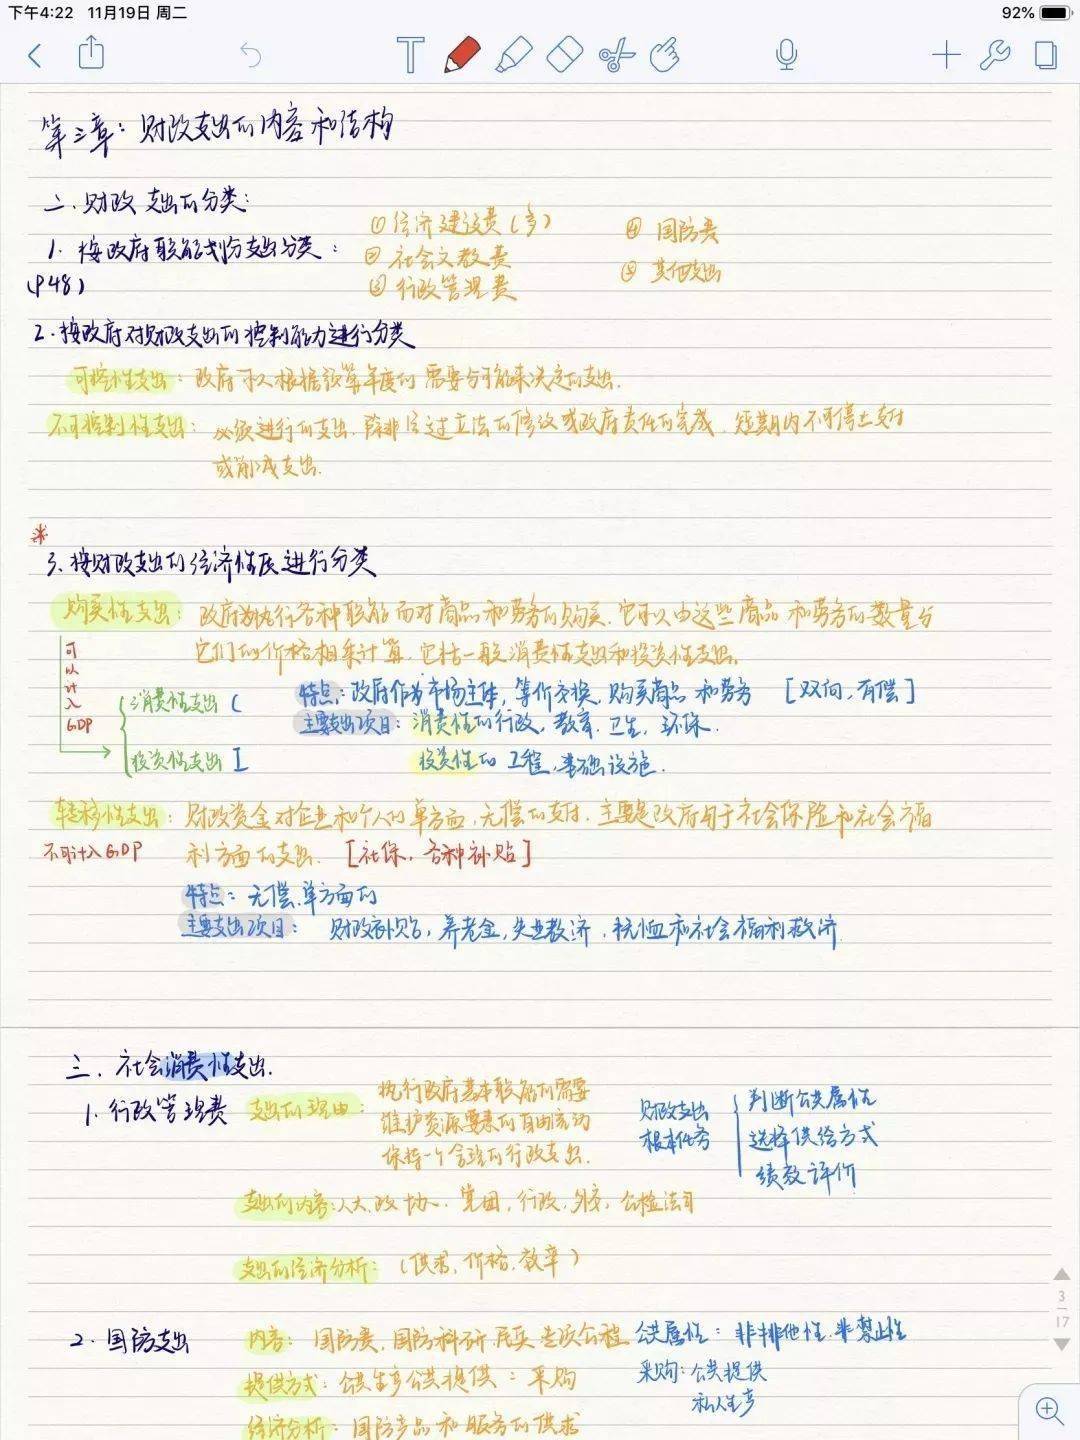 下午4:22 11月19日 周二
92%
T
第三章：财政支出的内容和结构
二.财政支出的分类：
1.按政府职能划份支出分类：
(P48)
①经济建设费(多)
②社会文教费
③行政管理费
④国防费
⑤其他支出
2.按政府对财政支出的控制能力进行分类
可控性支出：政府可以根据预算年度的需要分可能来决定的支出.
不可控制性支出：必须进行的支出.除非经过立法的修改或政府责任的完成.短期内不可停止支付
或削减支出.
*
3.按财政支出的经济性质进行分类
购买性支出：政府为执行各种职能而对商品和劳务的购买.它可以由这些商品和劳务的数量与
它们的价格相乘计算.包括一般消费性支出和投资性支出.
可以计入GDP
消费性支出(
投资性支出[
特点：政府作为市场主体,等价交换.购买商品和劳务 [双向,有偿]
主要支出项目：消费性的行政,教育.卫生,环保.
投资性的工程,基础设施.
转移性支出：财政资金对企业和个人的单方面,无偿的支付.主要是政府用于社会保险和社会福
利方面的支出. [社保,各种补贴]
不可计入GDP
特点：无偿.单方面的
主要支出项目：财政补贴,养老金,失业救济,抚恤和社会福利救济.
三.社会消费性支出.
1.行政管理费
支出的理由：执行政府基本职能的需要
维护资源要素的自由流动
保持一个合理的行政支出.
财政支出
根本任务
判断公共属性
选择供给方式
绩效评价
支出的内容：人大.政协.党团,行政.外交,公检法司
支出的经济分析：(供求,价格.效率)
2.国防支出
内容：国防费,国防科研.民兵.专项工程
公共属性：非排他性.非禁止性
提供方式：公共生产公共提供：采购
采购：公共提供
私人生产
经济分析：国防产品和服务的供求
3
17